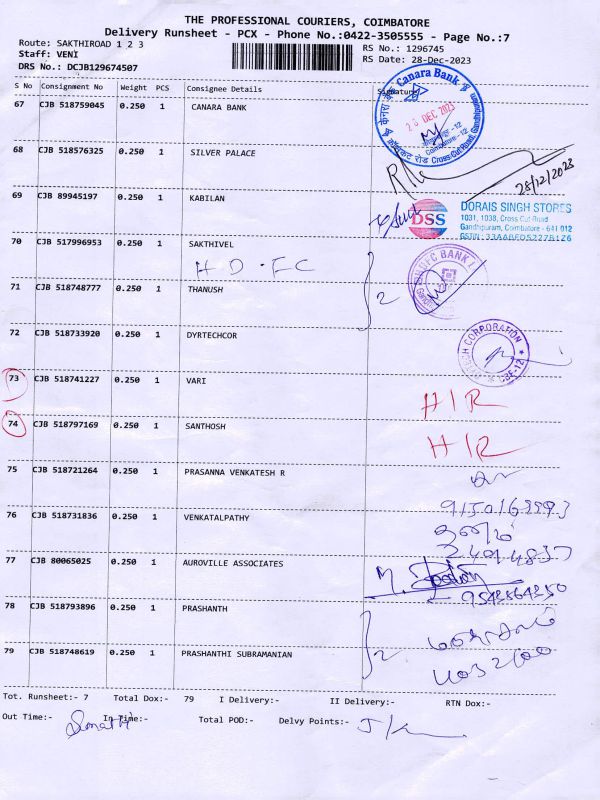 THE PROFESSIONAL COURIERS, COIMBATORE
Delivery Runsheet - PCX - Phone No.:0422-3505555 - Page No.:7
Route: SAKTHIROAD 1 2 3
RS No.: 1296745
Staff: VENI
RS Date: 28-Dec-2023
DRS No.: DCJB129674507
S No Consignment No Weight PCS Consignee Details Signature
67 CJB 518759045 0.250 1 CANARA BANK
Canara Bank
DEC 2023
Cross Cut Road, Gandhipuram
68 CJB 518576325 0.250 1 SILVER PALACE
28/12/2023
69 CJB 89945197 0.250 1 KABILAN
DSS DORAIS SINGH STORES
1031, 1038, Cross Cut Road
Gandhipuram, Coimbatore - 641 012
70 CJB 517996953 0.250 1 SAKTHIVEL
HDFC
2
71 CJB 518748777 0.250 1 THANUSH
72 CJB 518733920 0.250 1 DYRTECHCOR
CORPORATION
CBE-12
73 CJB 518741227 0.250 1 VARI
H/R
74 CJB 518797169 0.250 1 SANTHOSH
H/R
75 CJB 518721264 0.250 1 PRASANNA VENKATESH R
76 CJB 518731836 0.250 1 VENKATALPATHY
77 CJB 80065025 0.250 1 AUROVILLE ASSOCIATES
78 CJB 518793896 0.250 1 PRASHANTH
2
79 CJB 518748619 0.250 1 PRASHANTHI SUBRAMANIAN
Tot. Runsheet:- 7 Total Dox:- 79 I Delivery:- II Delivery:- RTN Dox:-
Out Time:- In Time:- Total POD:- Delvy Points:-